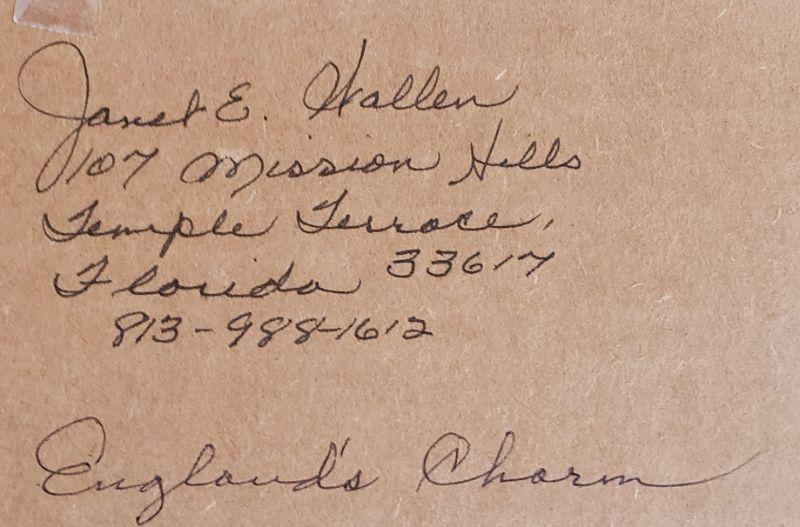 Janet E. Wallen
107 Mission Hills
Temple Terrace,
Florida 33617
813-988-1612
England's Charm